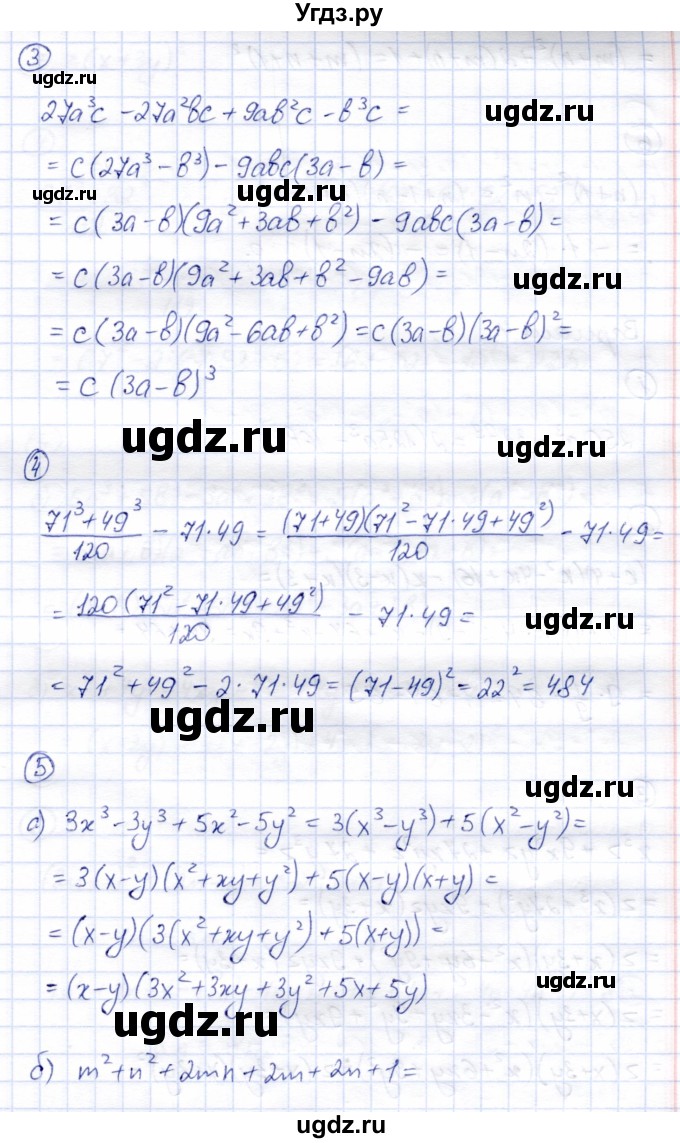 Угдз.ру
③
ugdz.ru
27a³c - 27a²bc + 9ab²c - b³c =
ugdz.ru
= c(27a³ - b³) - 9abc(3a - b) =
ugdz.ru
ugdz.ru
= c(3a - b)(9a² + 3ab + b²) - 9abc(3a - b) =
= c(3a - b)(9a² + 3ab + b² - 9ab) =
ugdz.ru
= c(3a - b)(9a² - 6ab + b²) = c(3a - b)(3a - b)² =
= c(3a - b)³
ugdz.ru
ugdz.ru
④
(71³ + 49³)/120 - 71·49 = ((71 + 49)(71² - 71·49 + 49²))/120 - 71·49 =
= (120(71² - 71·49 + 49²))/120 - 71·49 =
ugdz.ru
= 71² + 49² - 2·71·49 = (71 - 49)² = 22² = 484
ugdz.ru
⑤
ugdz.ru
а) 3x³ - 3y³ + 5x² - 5y² = 3(x³ - y³) + 5(x² - y²) =
= 3(x - y)(x² + xy + y²) + 5(x - y)(x + y) =
= (x - y)(3(x² + xy + y²) + 5(x + y)) =
ugdz.ru
= (x - y)(3x² + 3xy + 3y² + 5x + 5y)
ugdz.ru
б) m² + n² + 2mn + 2m + 2n + 1 =
ugdz.ru